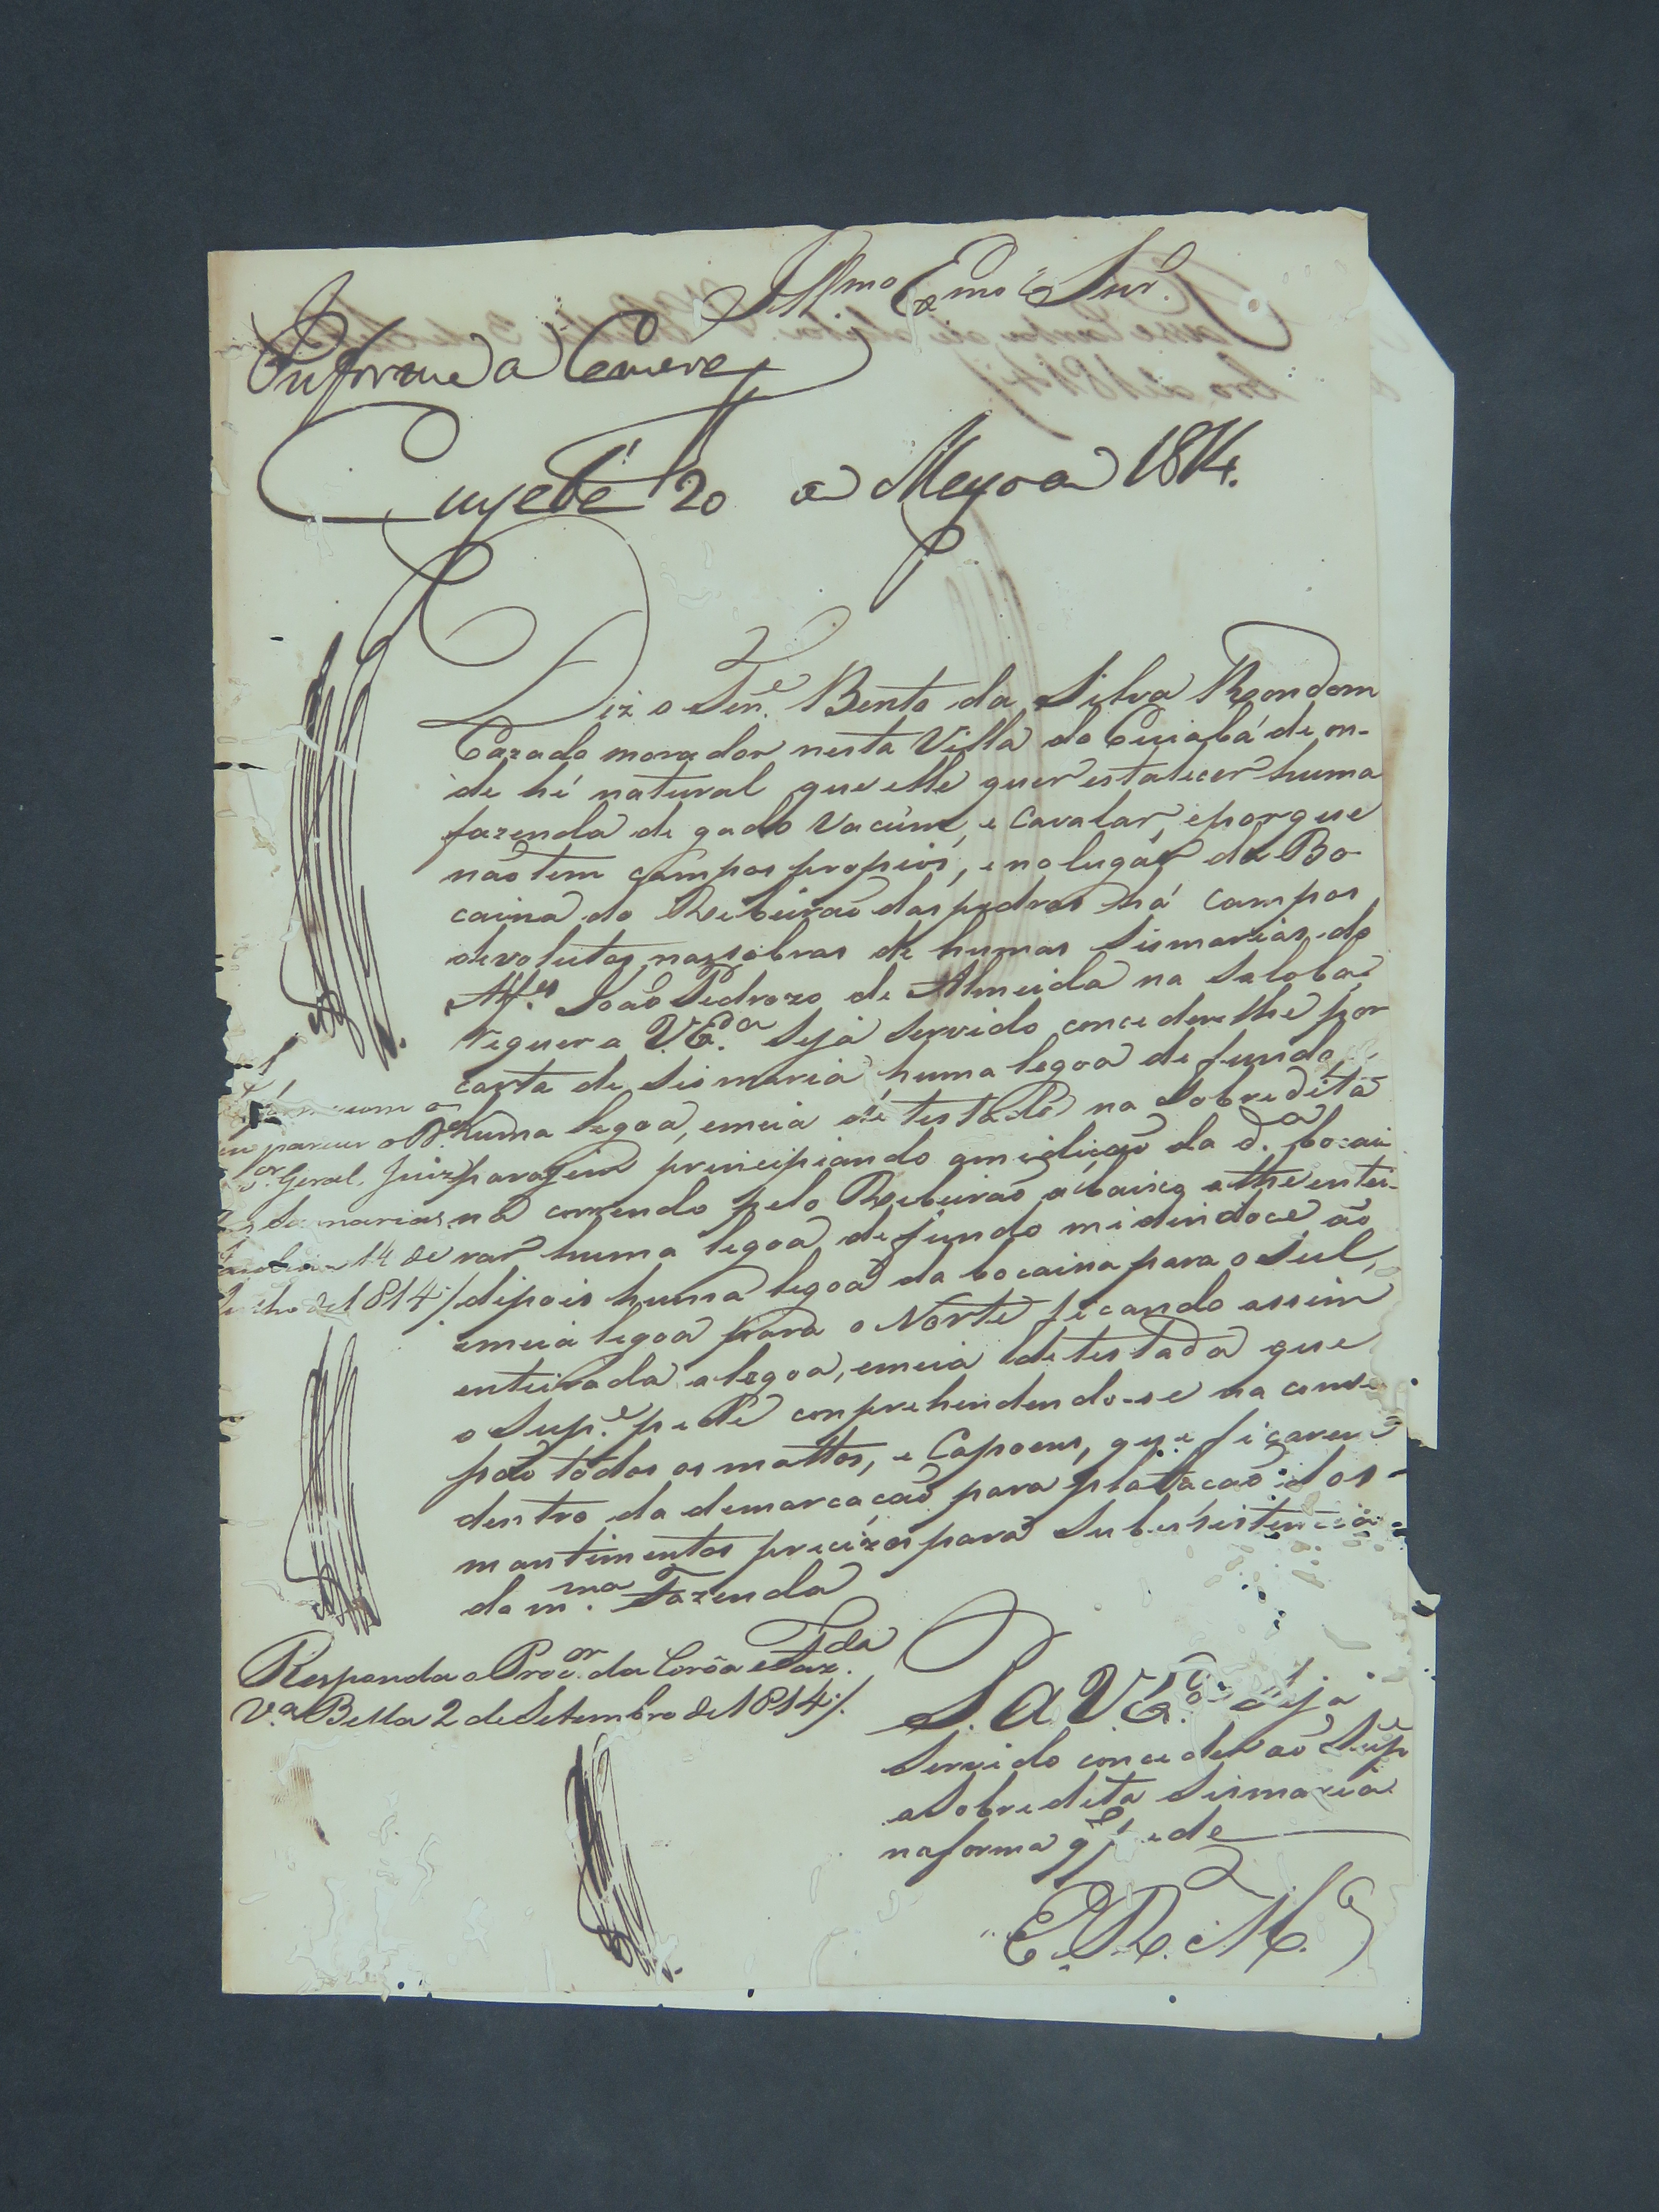 Illmo Exmo Snr.
Informe a Camera
Cuyabá 20 de Mayo de 1814.
Diz o Ten.e Bento da Silva Rondom
Cazado morador nesta Villa do Cuiabá de on-
de hé natural que elle quer estalecer huma
fazenda de gado Vacúm, e Cavalar, eporque
naõ tem campos propios, e no lugár da Bo-
caina do Ribeiraõ das pedras há campos
devolutos, nas sobras de humas Sismarias do
Alf.es Joaõ Pedrozo de Almeida na Saloba,
requer a V.Ex.a Seja Servido concederelhe por
carta de Sismaria huma legoa de fundo,
huma legoa, emeia de testada na Sobredita
paragem principiando amidiçaõ da d.a bocai
na correndo pelo Ribeiraõ abaixo athe entei-
rar huma legoa de fundo midindoce ao
dipois huma legoa da bocaina para o Sul,
emeia legoa para o Norte ficando assim
enteirada a legoa, emeia de testada que
o Sup.e pede conprehendendo-se na
todos os mattos, e Capoens, que ficarem
dentro da demarcaçaõ para platacaõ dos
mantimentos precizos para Subsistencia
da m.ma Fazenda
parecer o
Geral, Juiz
14 de
de 1814
Responda o Proc.or da Corôa e Faz.da
V.a Bella 2 de Setembro de 1814
S. a V.Ex.a seja
Servido conceder ao Sup.e
a Sobredita Sismaria
na forma q pede
E. R. M.